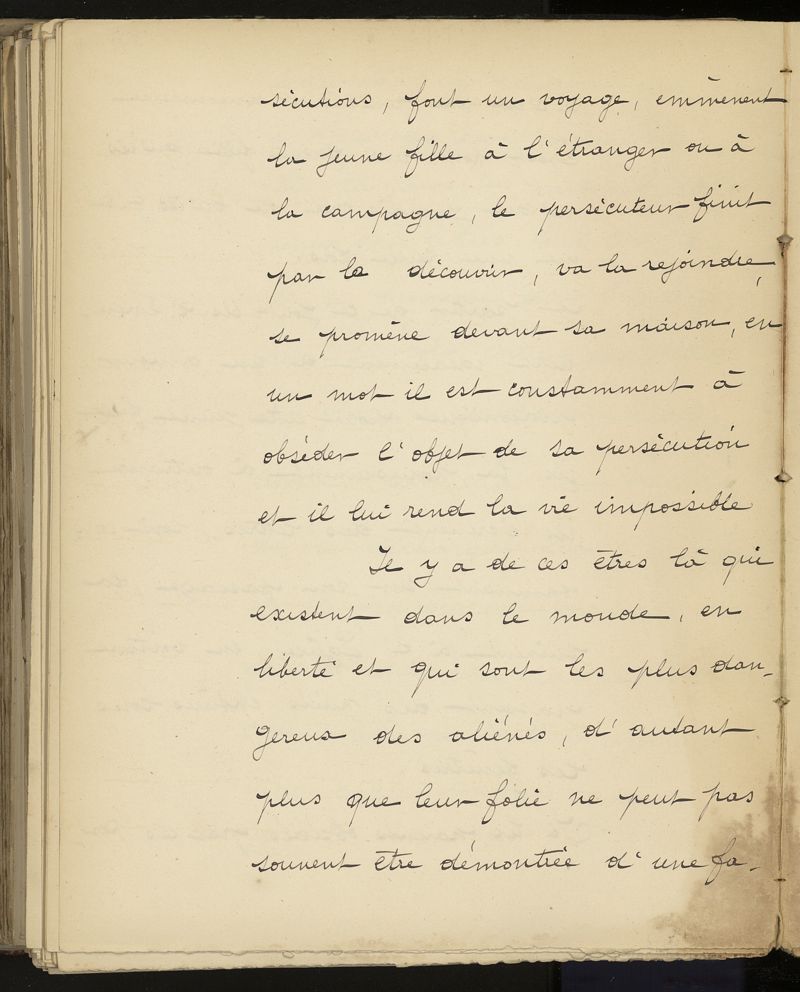 sécutions, font un voyage, emmènent
la jeune fille à l'étranger ou à
la campagne, le persécuteur finit
par la découvrir, va la rejoindre,
se promène devant sa maison, en
un mot il est constamment à
obséder l'objet de sa persécution
et il lui rend la vie impossible
Il y a de ces êtres là qui
existent dans le monde, en
liberté et qui sont les plus dan-
gereux des aliénés, d'autant
plus que leur folie ne peut pas
souvent être démontrée d'une fa-